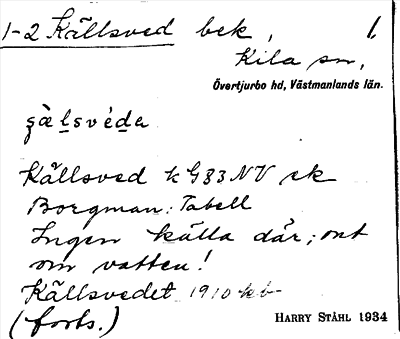 1-2 Källsved bek, 1.
Kila sn,
Övertjurbo hd, Västmanlands län.
Källsved k G33 NV ek
Borgman: Tabell
Ingen källa där; ont
om vatten!
Källsvedet 1910 kb
(forts.) HARRY STÅHL 1934